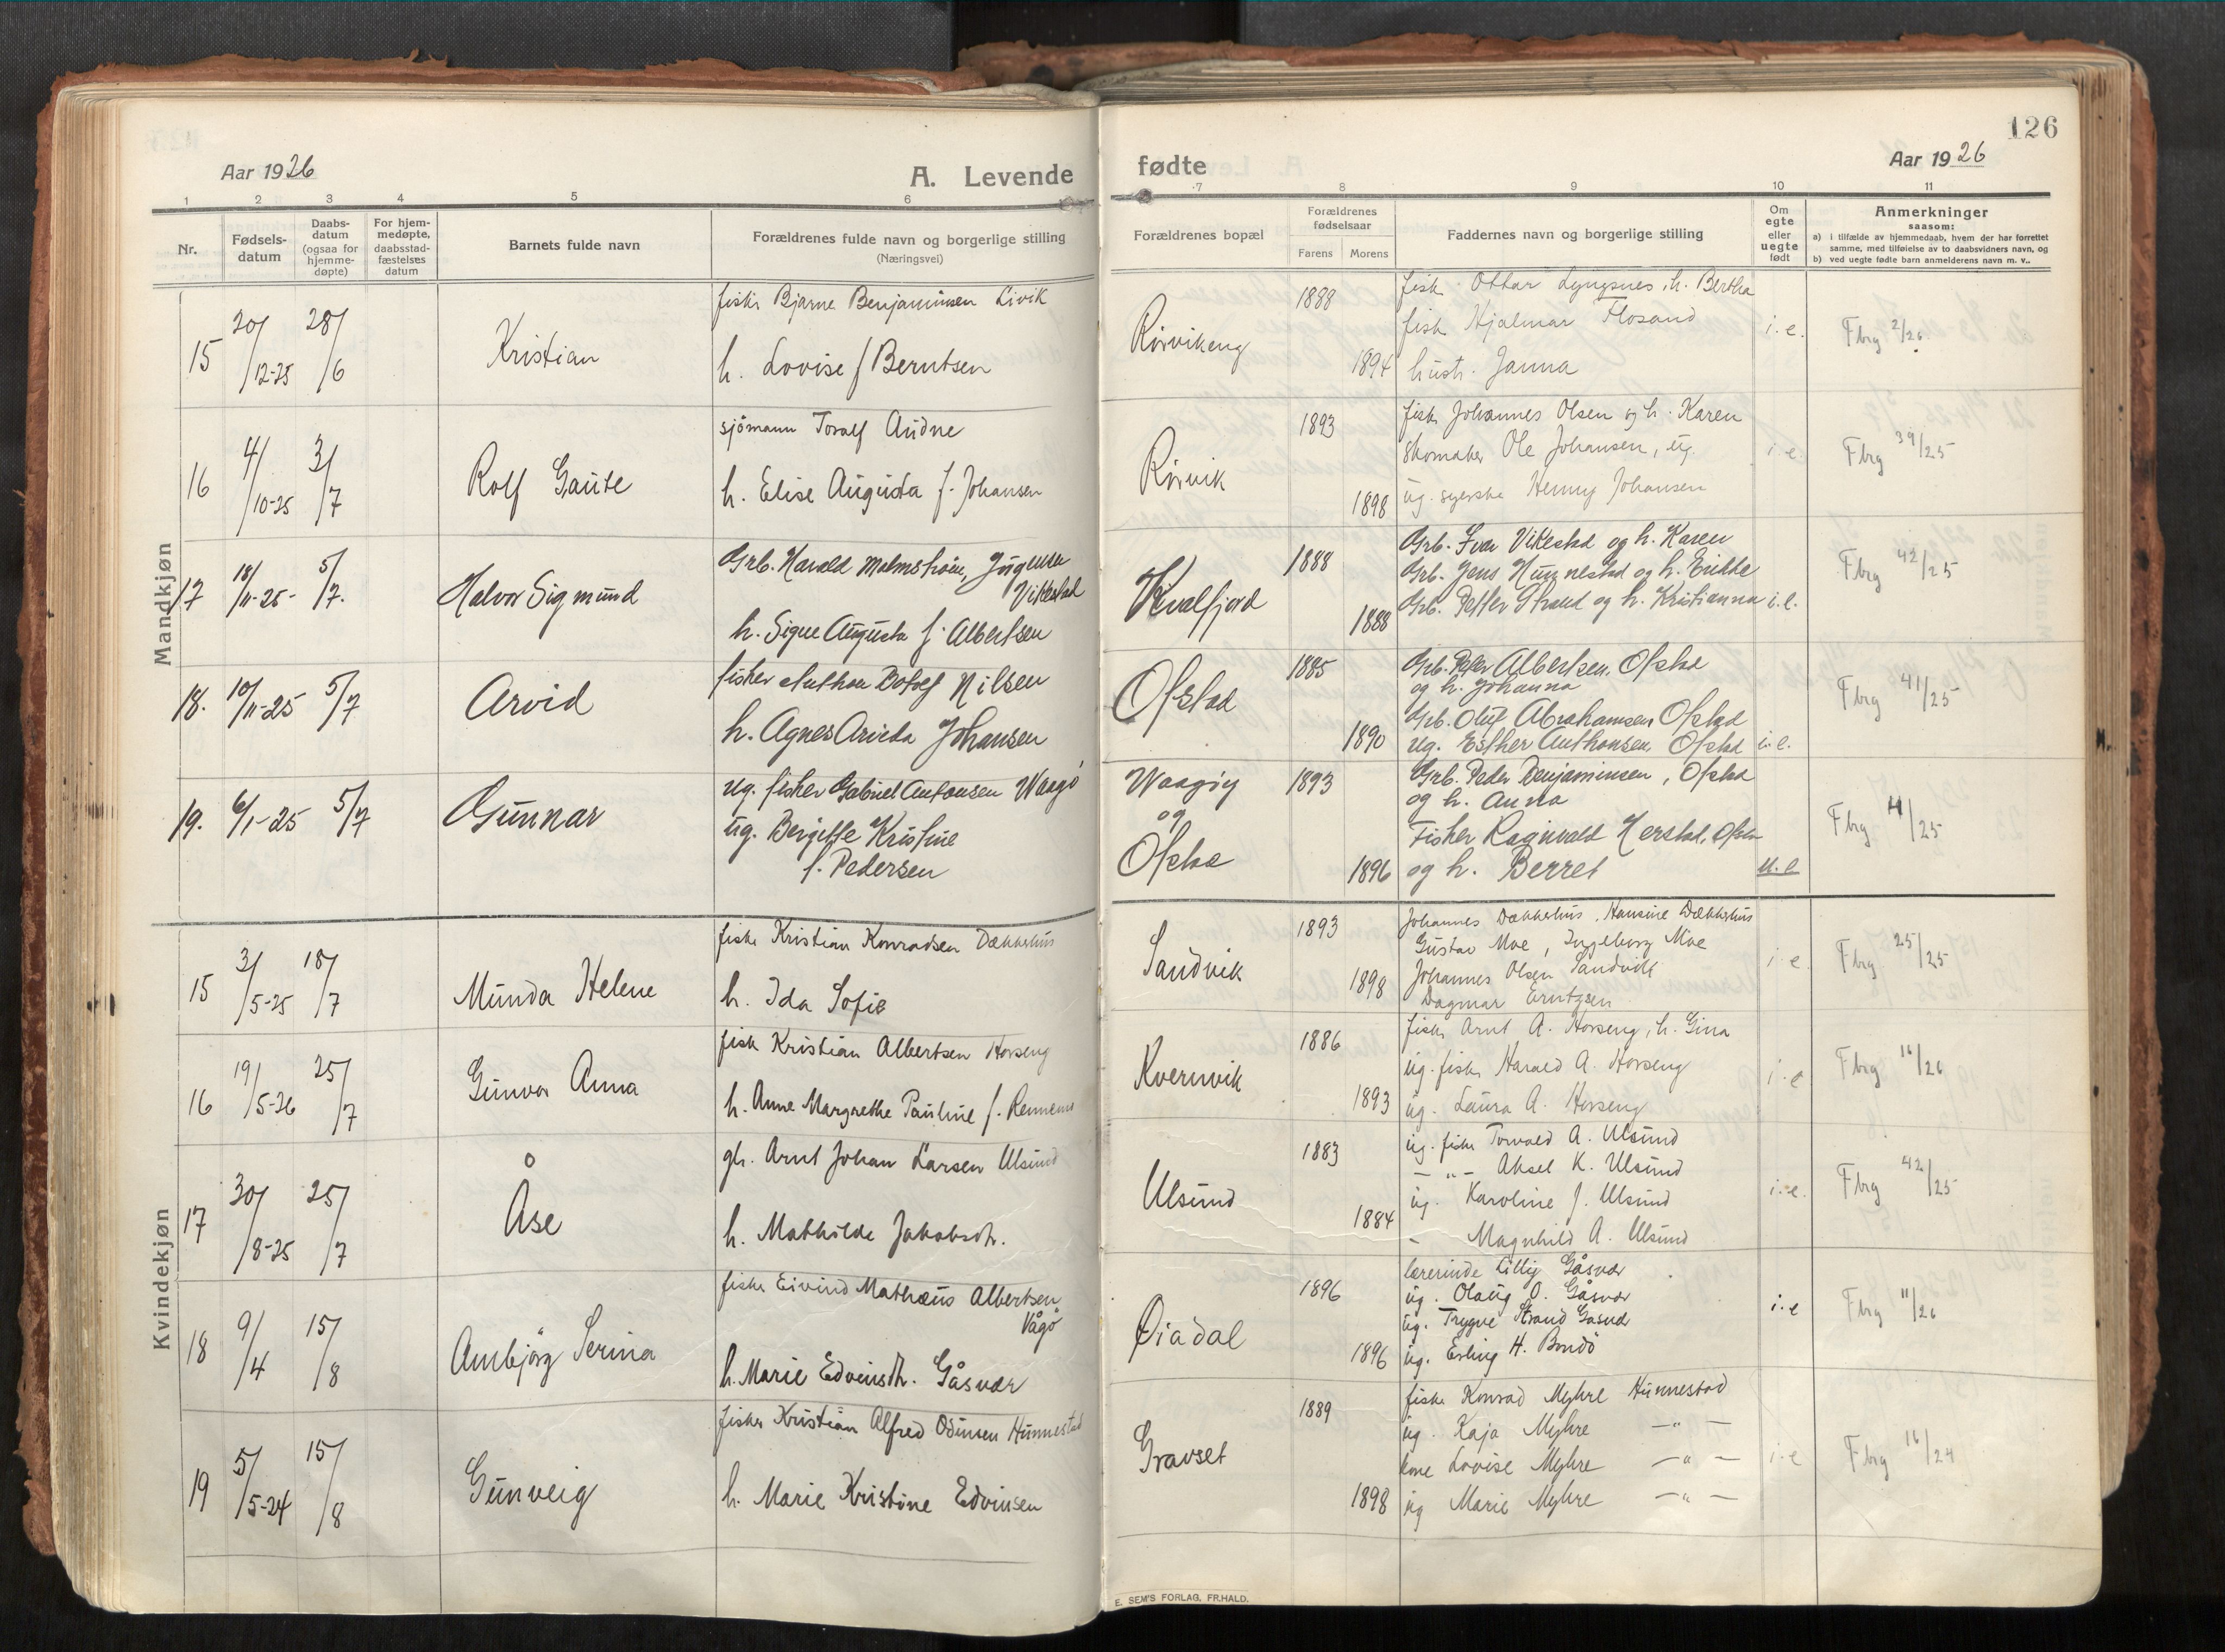 126
Aar 1926
A. Levende
fødte
Aar 1926
1 2 3 4 5 6
7 8 9 10 11
Nr.
Fødsels-
datum
Daabs-
datum
(ogsaa for
hjemme-
døpte)
For hjem-
medøpte,
daabsstad-
fæstelses
datum
Barnets fulde navn
Forældrenes fulde navn og borgerlige stilling
(Næringsvei)
Forældrenes bopæl
Forældrenes
fødselsaar
Farens Morens
Faddernes navn og borgerlige stilling
Om
egte
eller
uegte
født
Anmerkninger
saasom:
a) i tilfælde av hjemmedaab, hvem der har forrettet
samme, med tilføielse av to daabsvidners navn, og
b) ved uegte fødte barn anmelderens navn m. v..
Mandkjøn
15
20/12-25
28/6
Kristian
fisker Bjarne Benjaminsen Livik
h. Lovise f Berntsen
Rörvikeng
1888
1894
fisk. Ottar Lyngsnes, h. Bertha
fisk Hjalmar Flosand
hustr. Janna
i.e.
Fbrg 2/26
16
4/10-25
3/7
Rolf Gaute
sjömann Toralf Audne
h. Elise Augusta f. Johansen
Rörvik
1893
1898
fisk Johannes Olsen og h. Karen
Skomaker Ole Johansen, ug.
ug. syerske Henny Johansen
i e
Fbrg 39/25
17
18/11-25-
5/7.
Halvor Sigmund
Grb. Harald Malmström, Jörgensen
Vikestad
h. Signe Augusta f. Albertsen
Kvalfjord
1888
1888
Grb. Ivar Vikestad og h. Karen
Grb. Jens Hunnestad og h. Erikke
Grb. Petter Strand og h. Kristianna
i.e.
Fbrg 42/25
18.
10/11-25
5/7
Arvid
fisher Anthon Botolf Nilsen
h. Agnes Arvida Johansen
Ofstad
1885
1890
Grb. Peder Albertsen. Ofstad
og h. Johanna
Grb. Oluf Abrahamsen Ofstad
ug. Esther Anthonsen, Ofstad
i.e.
Fbrg 41/25
19.
6/1-25
5/7
Gunnar
ug. fisher Gabriel Antonsen Waagö
ug. Bergitte Kristine
f. Pedersen
Waagöy
og
Ofstad
1893
1896
Grb. Peder Benjaminsen, Ofstad
og h. Anna
Fisher Raginvald Herstad, Ofstad
og h. Berret
u.e
Fbrg 4/25
Kvindekjøn
15
3/5-25
18/7
Munda Helene
fisk Kristian Konradsen Dækkerhus
h. Ida Sofie
Sandvik
1893
1898
Johannes Dækkerhus, Hansine Dækkerhus
Gustav Moe, Ingeborg Moe
Johannes Olsen Sandvik
Dagmar Erntzsen
i e
Fbrg 25/25
16
19/5-26
25/7
Gunvor Anna
fisk Kristian Albertsen Horseng
h. Anne Margrethe Pauline f. Rennemo
Kvernvik
1886
1893
fisk Arnt A. Horseng, h. Gina
ug. fisk Harald A. Horseng
ug. Laura A. Horseng
i e
Fbrg 16/26
17
30/8-25
25/7
Åse
gb. Arnt Johan Larsen Ulsund
h. Mathilde Jakobsdt.
Ulsund
1883
1884
ug. fisk Torvald A. Ulsund
— " — Aksel K. Ulsund
ug. Karoline J. Ulsund
- Magnhild A. Ulsund
i.e.
Fbrg 42/25
18
9/4
15/8
Arnbjörg Serina
fisker Eivind Mathæus Albertsen
Vågö
h. Marie Edvinsdt. Gåsvær
Oiadal
1896
1896
lærerinde Lilly Gåsvær
ug. Olaug O. Gåsvær
ug. Trygve Strand Gåsvær
ug. Erling H. Bondö
i.e
Fbrg 11/26
19
5/5-24
15/8
Gunveig
fisker Kristian Alfred Odinsen Hunnestad
h. Marie Kristine Edvinsen
Gravset
1889
1898
fisk Konrad Myhre Hunnestad
ug. Kaja Myhre — " —
kone Lovise Myhre — " —
ug Marie Myhre — " —
i e
Fbrg 16/24
E. SEM'S FORLAG, FR.HALD.